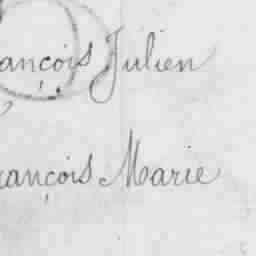 ançois Julien
rançois Marie